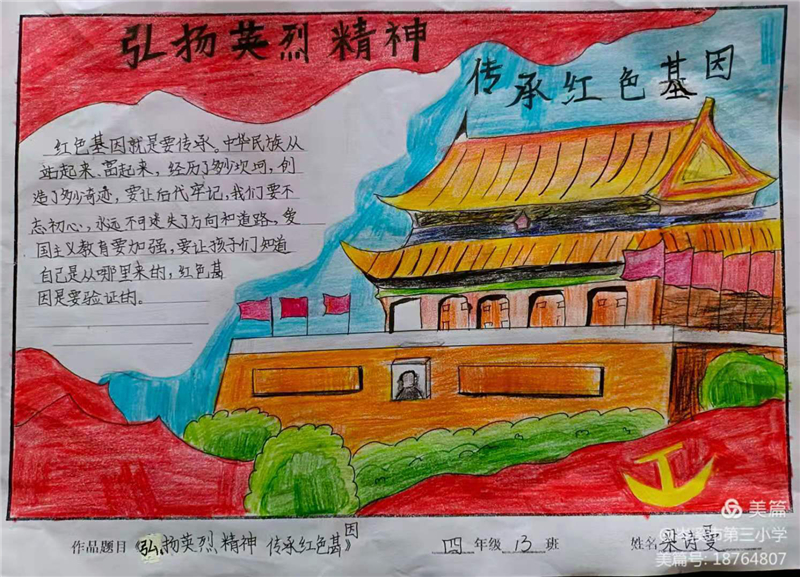 弘扬英烈精神
传承红色基因
红色基因就是要传承。中华民族从
站起来、富起来,经历了多少坎坷,创
造了多少奇迹,要让后代牢记,我们要不
忘初心,永远不可迷失了方向和道路,爱
国主义教育要加强,要让孩子们知道
自己是从哪里来的,红色基
因是要验证的。
美篇
市第三小学
美篇号: 18764807
作品题目《弘扬英烈精神 传承红色基因》 四年级 13 班 姓名 梁诗曼